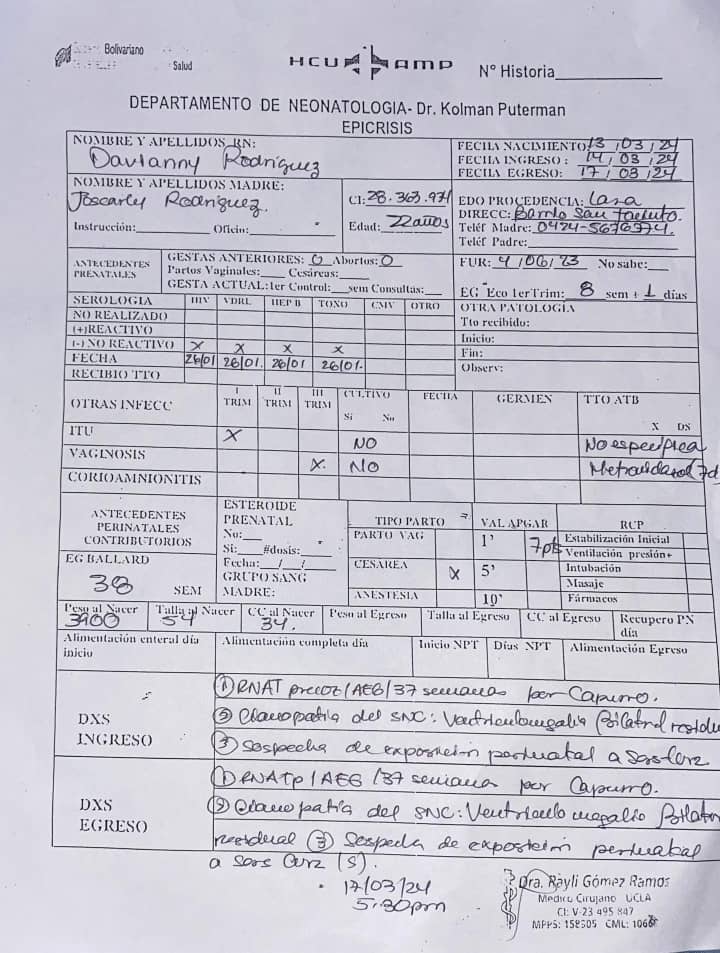 Bolivariano
Salud
HCU AMP Nº Historia
DEPARTAMENTO DE NEONATOLOGIA- Dr. Kolman Puterman
EPICRISIS
NOMBRE Y APELLIDOS RN: Davianny Rodriguez
FECHA NACIMIENTO: 13/03/24
FECHA INGRESO: 14/03/24
FECHA EGRESO: 17/03/24
NOMBRE Y APELLIDOS MADRE: Joscarly Rodriguez.
Instrucción: Oficio:
CI: 28.363.971
Edad: 22 años
EDO PROCEDENCIA: Lara
DIRECC: Barrio San
Teléf Madre: 0424-5676774.
Teléf Padre:
ANTECEDENTES PRENATALES
GESTAS ANTERIORES: 0 Abortos: 0
Partos Vaginales: Cesáreas:
GESTA ACTUAL: 1er Control: sem Consultas:
FUR: 4/06/23 No sabe:
EG Eco 1erTrim: 8 sem + 1 días
SEROLOGIA HIV VDRL HEP B TOXO CMV OTRO
NO REALIZADO
(+)REACTIVO
(-) NO REACTIVO x x x x
FECHA 26/01 26/01. 26/01 26/01.
RECIBIO TTO
OTRA PATOLOGIA
Tto recibido:
Inicio:
Fin:
Observ:
OTRAS INFECC I TRIM II TRIM III TRIM CULTIVO Si No FECHA GERMEN TTO ATB X DS
ITU X NO No especifica
VAGINOSIS X. NO Metronidazol 7d
CORIOAMNIONITIS
ANTECEDENTES PERINATALES CONTRIBUTORIOS
ESTEROIDE PRENATAL
No:
Si: #dosis:
Fecha: / /
GRUPO SANG MADRE:
TIPO PARTO
PARTO VAG
CESAREA X
ANESTESIA
VAL APGAR
1' 7pts
5'
10'
RCP
Estabilización Inicial
Ventilación presión+
Intubación
Masaje
Fármacos
EG BALLARD
38 SEM
Peso al Nacer 3900
Talla al Nacer 54
CC al Nacer 34.
Peso al Egreso Talla al Egreso CC al Egreso Recupero PN día
Alimentación enteral día inicio Alimentación completa día Inicio NPT Días NPT Alimentación Egreso
DXS INGRESO
① RNAT precoz/AEG/37 semanas por Capurro.
② del SNC: Ventriculomegalia Bilateral residu
③ Sospecha de exposición perinatal a
DXS EGRESO
① RNATp/AEG/37 semana por Capurro.
② del SNC: Ventriculo megalia Bilater
residual ③ Sospecha de exposición perinatal
a (S).
17/03/24
5:30pm
Dra. Rayli Gómez Ramos
Médico Cirujano UCLA
CI: V-23 495 847
MPPS: 158505 CML: